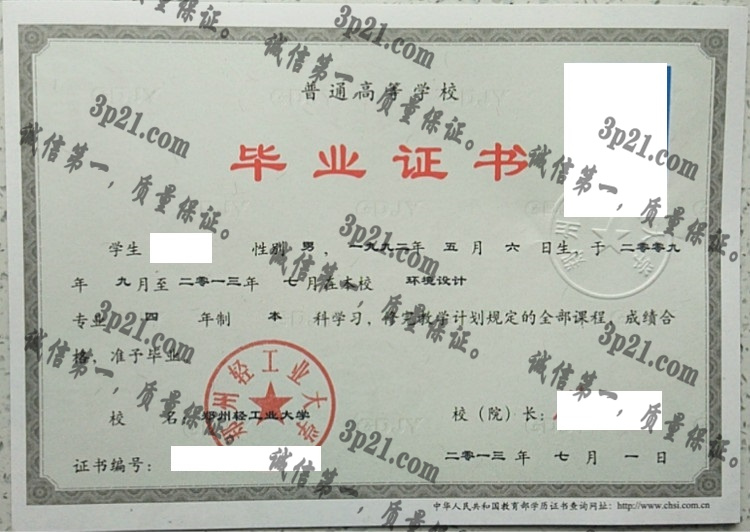 普通高等学校
毕业证书
学生 性别 男，一九九二年 五月 六日生，于 二〇〇九
年 九月至 二〇一三年 七月在本校 环境设计
专业 四 年制 本 科学习，修完教学计划规定的全部课程，成绩合
格，准予毕业。
郑州轻工业大学
校 名：郑州轻工业大学 校（院）长：
证书编号： 二〇一三年 七月 一日
中华人民共和国教育部学历证书查询网址：http://www.chsi.com.cn
3p21.com
诚信第一，质量保证。
3p21.com
诚信第一，质量保证。
3p21.com
诚信第一，质量保证。
3p21.com
诚信第一，质量保证。
3p21.com
诚信第一，质量保证。
3p21.com
诚信第一，质量保证。
3p21.com
诚信第一，质量保证。